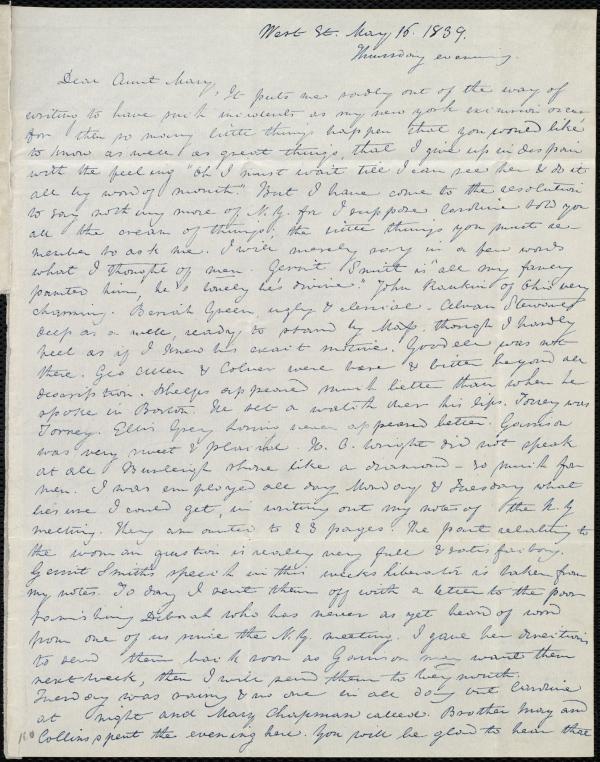 West St. May 16. 1839.
Thursday evening.
Dear Aunt Mary,
It puts me sadly out of the way of
writing to have such incidents as my New York excursion occur
For then so many little things happen that you would like
to know as well as great things, that I give up in despair
with the feeling "Oh I must wait till I can see her & do it
all by word of mouth" But I have come to the resolution
to say nothing more of N.Y. for I suppose Caroline told you
all the cream of things, the little things you must re-
member to ask me. I will merely say in a few words
what I thought of men. Gerrit Smith is "all my fancy
painted him, he's lovely he's divine." John Rankin of Ohio very
charming. Beriah Green, ugly & clerical. Alvan Stewart
deep as a well, ready to stand by Mass. though I hardly
feel as if I knew his exact motive. Goodell was not
there. Geo Allen & Colver were base & bitter beyond all
description. Phelps appeared much better than when he
spoke in Boston. He set a watch over his lips. Torrey was
Torrey. Ellis Grey Loring never appeared better. Garrison
was very sweet & placid. H. C. Wright did not speak
at all Burleigh shone like a diamond - so much for
men. I was employed all day Monday & Tuesday what
leisure I could get, in writing out my notes of the N.Y
meeting. They amounted to 28 pages. The part relating to
the woman question is really very full & satisfactory.
Gerrit Smith's speech in this week's liberator is taken from
my notes. To day I sent them off with a letter to the poor
famishing Deborah who has never as yet heard of word
from one of us since the N.Y. meeting. I gave her directions
to send them back soon as Garrison may want them
next week, then I will send them to Weymouth.
Tuesday was rainy & no one in all day but Caroline
at night and Mary Chapman called. Brother May and
Collins spent the evening here. You will be glad to hear that